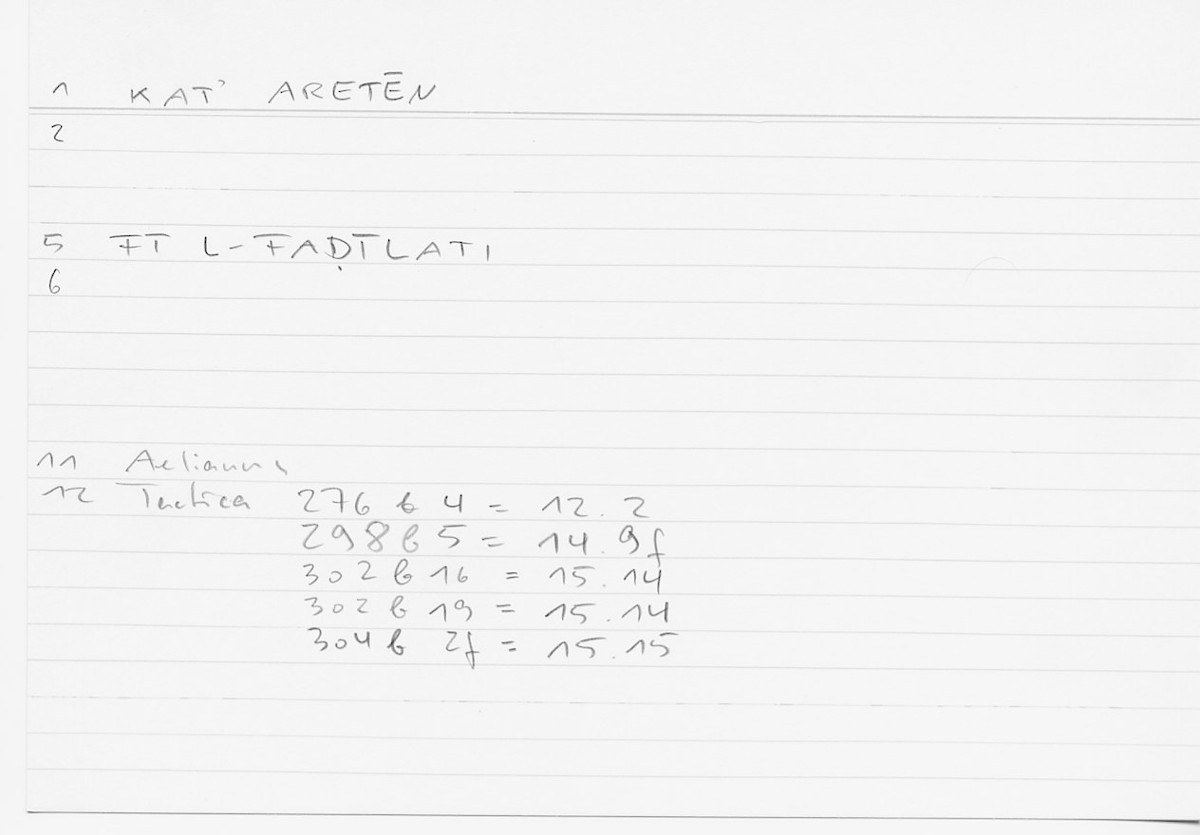 1 KAT' ARETĒN
2
5 FĪ L-FAḌĪLATI
6
11 Aelianus
12 Tactica 276 b 4 = 12.2
298 b 5 = 14.9f
302 b 16 = 15.14
302 b 19 = 15.14
304 b 2f = 15.15